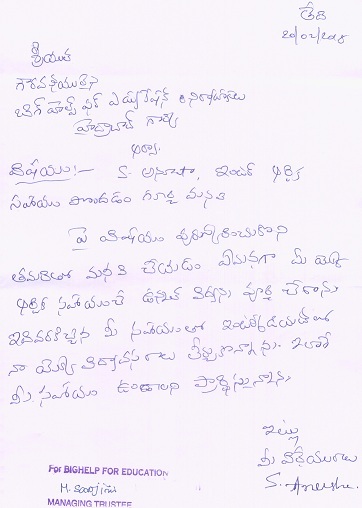 తేది
20/02/2018
శ్రీయుత
గౌరవనీయులైన
బిగ్ హెల్ప్ ఫర్ ఎడ్యుకేషన్ నిర్వాహకులు
హైద్రాబాద్ గార్కి
ఆర్యా,
విషయం:- S. అనూషా, ఇంటర్ ఆర్థిక
సహాయం పొందడం గూర్చి మనవి
పై విషయం పురస్కరించుకొని
తమరితో మనవి చేయడం ఏమనగా మీ యొక్క
ఆర్థిక సహాయంచే ఉన్నత విద్యను పూర్తి చేశాను
మీ సహాయంతో
నా యొక్క
మీ సహాయం ఉండాలని ప్రార్థిస్తున్నాను
ఇట్లు
మీ విధేయురాలు
S. Anusha.
For BIGHELP FOR EDUCATION
MANAGING TRUSTEE